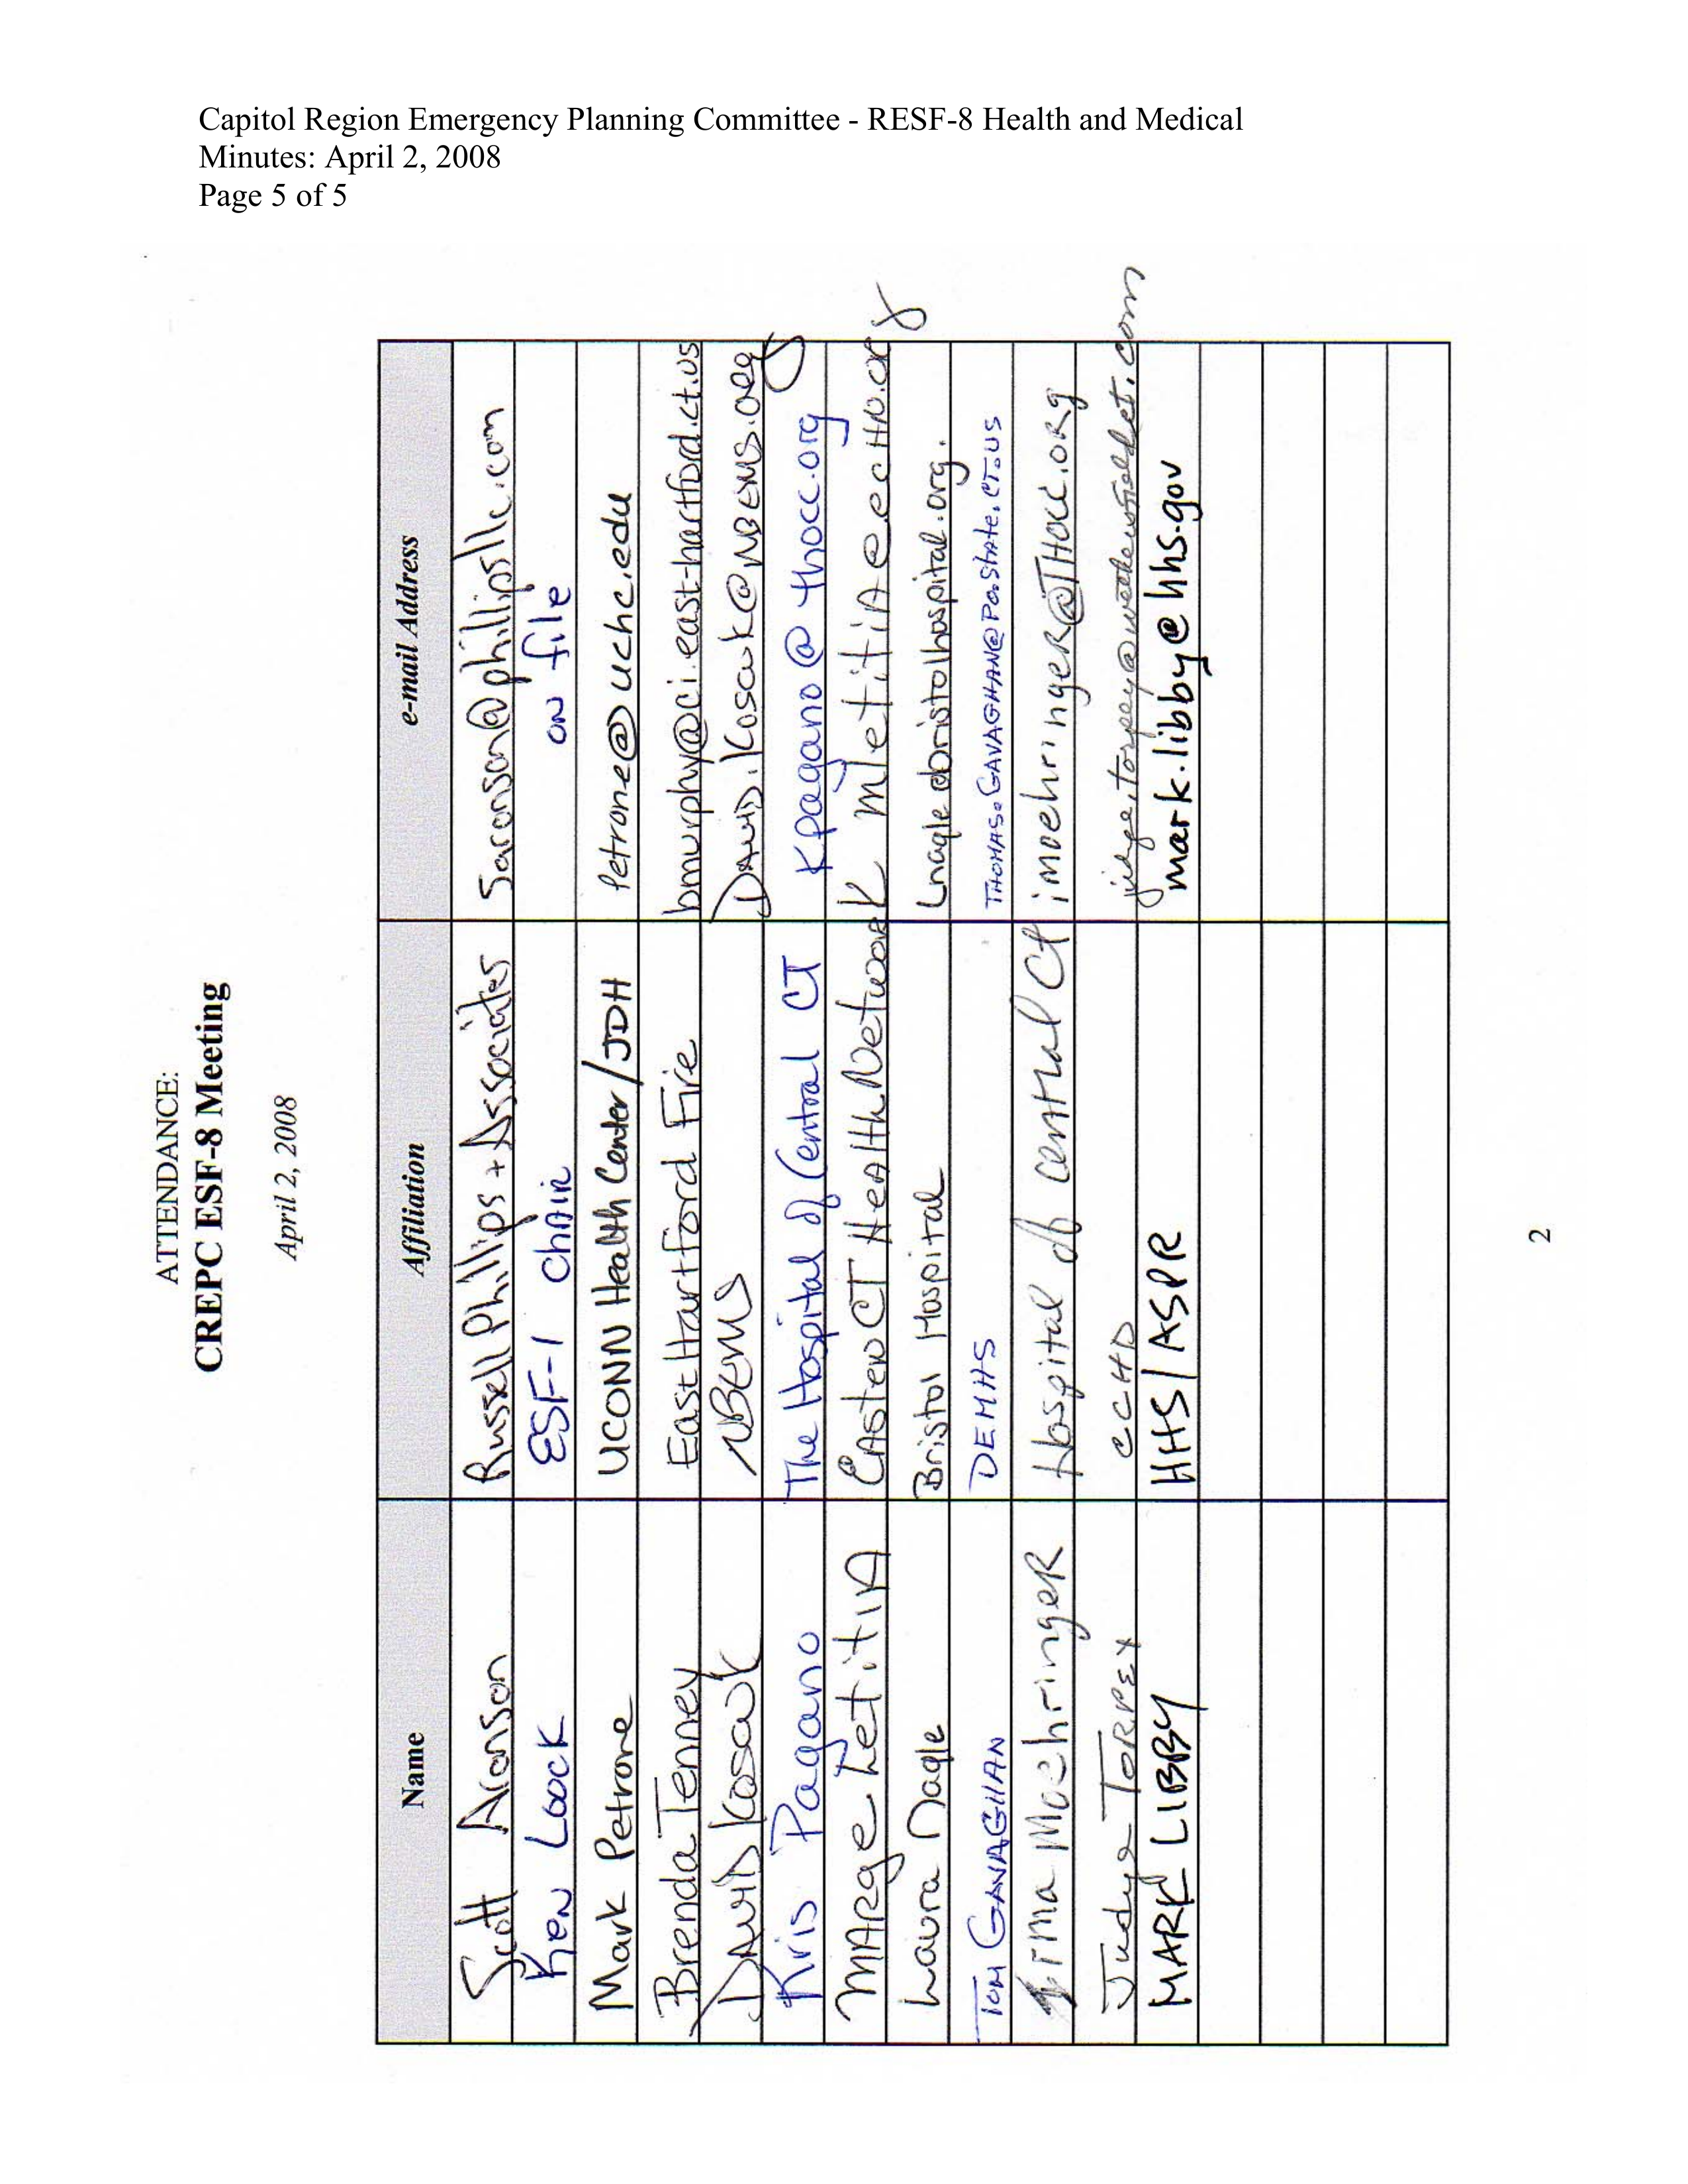 Capitol Region Emergency Planning Committee - RESF-8 Health and Medical
Minutes: April 2, 2008
Page 5 of 5
ATTENDANCE:
CREPC ESF-8 Meeting
April 2, 2008
Name Affiliation e-mail Address
Scott Aronson Russell Phillips + Associates Saronson@phillipsllc.com
Ken Loock ESF-1 ChAir oN file
Mark Petrone UCONN Health Center/JDH Petrone@uchc.edu
Brenda Tenney East Hartford Fire bmurphy@ci.east-hartford.ct.us
DAviD Kosciuk NBEMS DAviD.Kosciuk@NBEMS.org
Kris Pagano The Hospital of Central CT Kpagano@thocc.org
MARge LetitiA EAsterN CT HeAlth NetworK MletitiA@ecHN.org
Laura Nagle Bristol Hospital Lnagle@bristolhospital.org.
Tom GAVAGHAN DEMHS THOMAS.GAVAGHAN@Po.State.CT.US
irma MoehringeR Hospital of central Ct imoehringeR@THocc.oRg
Judye TORPEY CCHD judye.torpey@wethersfieldct.com
MARK LIBBY HHS/ASPR mark.libby@hhs.gov
2